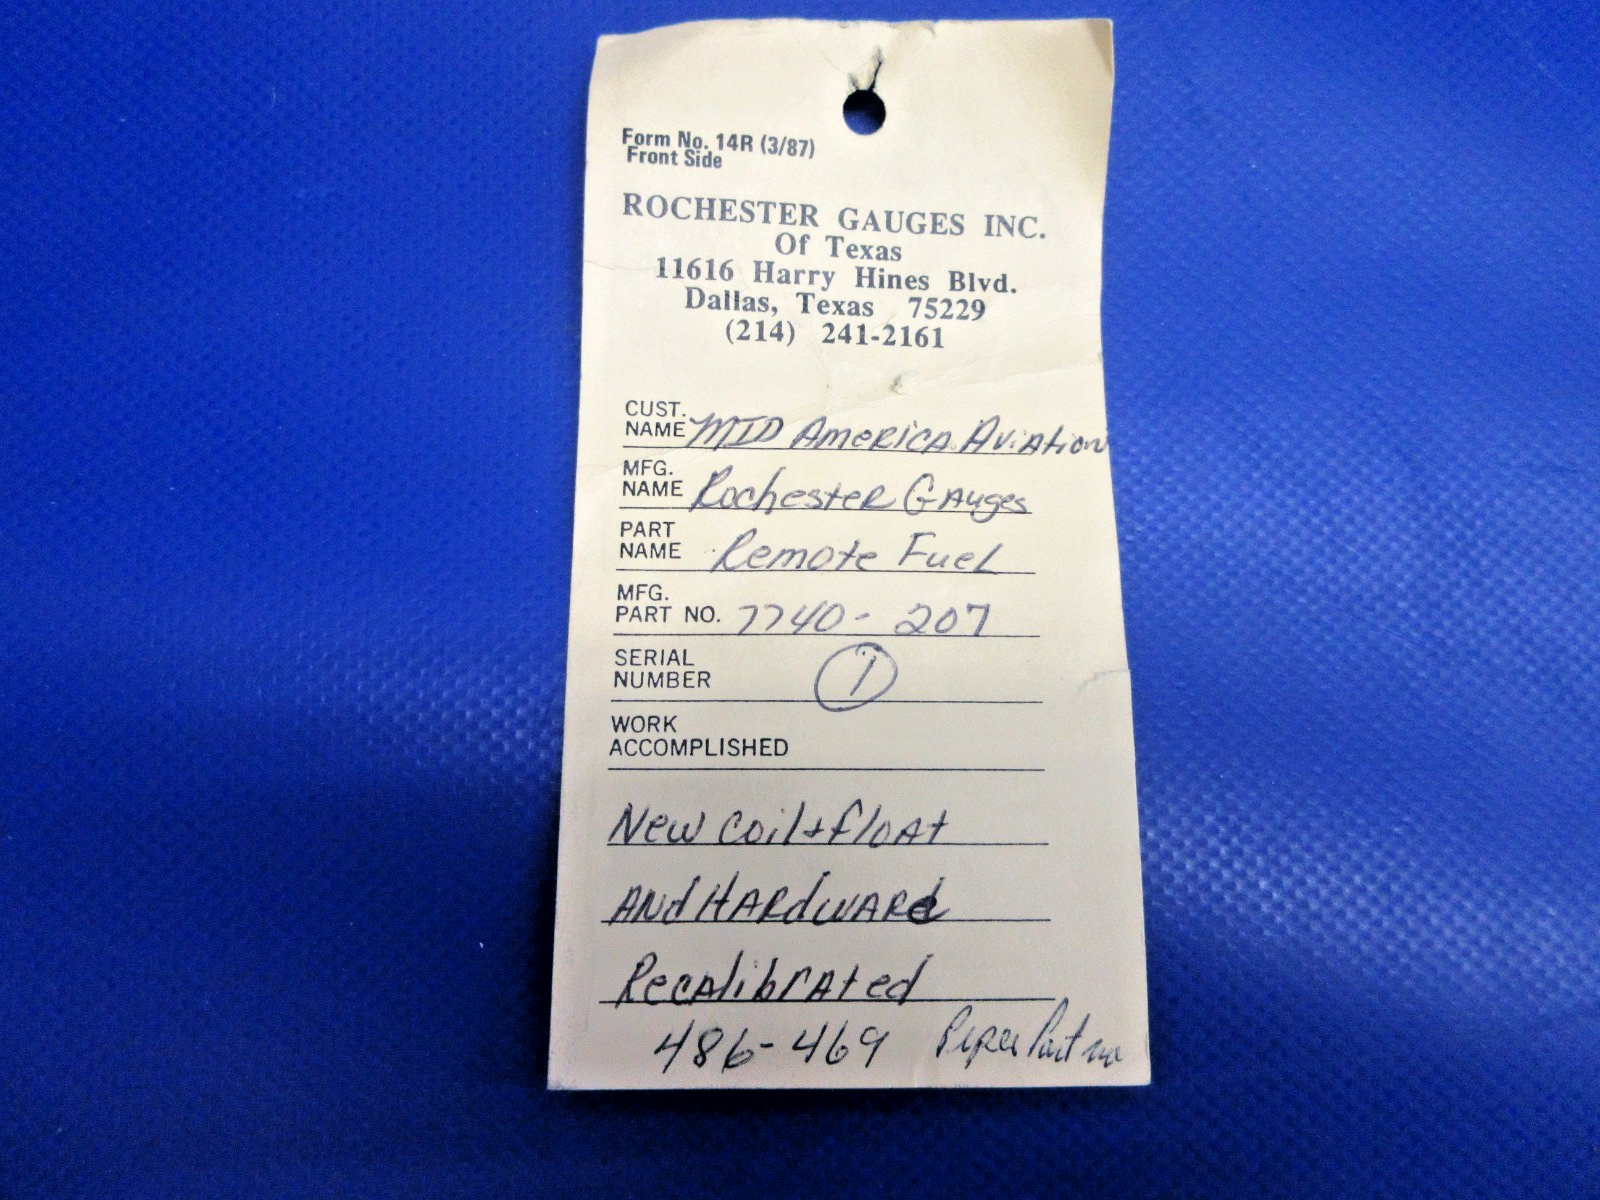 Form No. 14R (3/87)
Front Side
ROCHESTER GAUGES INC.
Of Texas
11616 Harry Hines Blvd.
Dallas, Texas 75229
(214) 241-2161
CUST.
NAME MID AMERICA AVIATION
MFG.
NAME Rochester Gauges
PART
NAME Remote Fuel
MFG.
PART NO. 7740-207
SERIAL
NUMBER 1
WORK
ACCOMPLISHED
New coil + float
And Hardware
Recalibrated
486-469 Piper Part no